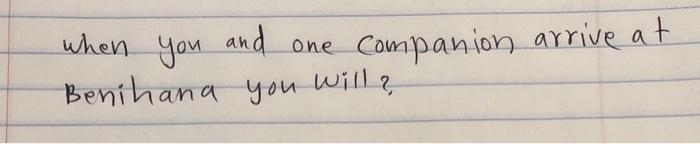 when you and one companion arrive at
Benihana you will?